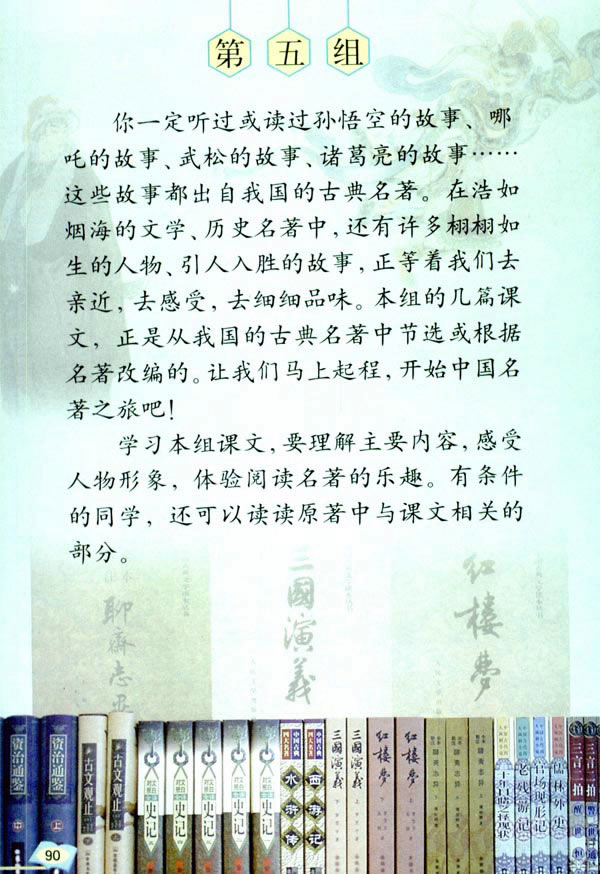 第五组
你一定听过或读过孙悟空的故事、哪
吒的故事、武松的故事、诸葛亮的故事……
这些故事都出自我国的古典名著。在浩如
烟海的文学、历史名著中，还有许多栩栩如
生的人物、引人入胜的故事，正等着我们去
亲近，去感受，去细细品味。本组的几篇课
文，正是从我国的古典名著中节选或根据
名著改编的。让我们马上起程，开始中国名
著之旅吧！
学习本组课文，要理解主要内容，感受
人物形象，体验阅读名著的乐趣。有条件
的同学，还可以读读原著中与课文相关的
部分。
聊齋志
三國演義
紅樓夢
资治通鉴 中
资治通鉴 上
古文观止
古文观止
史记
史记
史记
史记
史记
中国古典四大名著 水浒传
中国古典四大名著 西游记
三國演義 下
三國演義 上
紅樓夢 下
紅樓夢 上
老残游记
官场现形记
儒林外史
三言二拍
三言二拍
90